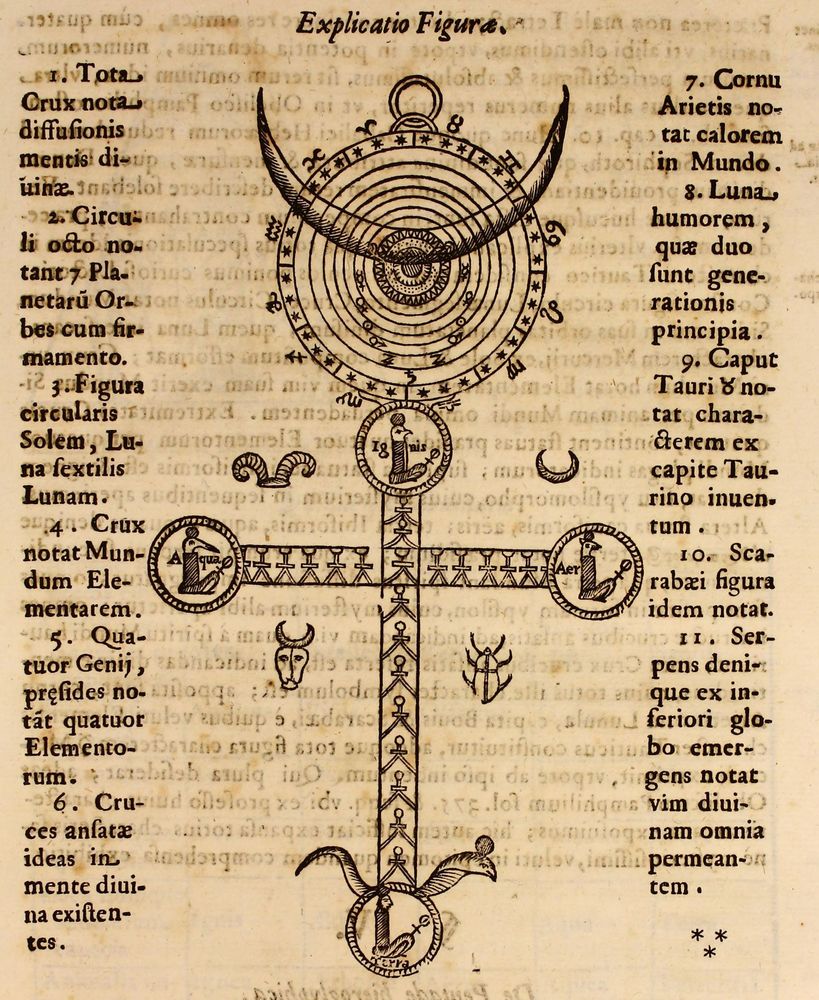 Explicatio Figuræ.
1. Tota
Crux nota
diffuſionis
mentis di-
uinæ.
2. Circu-
li octo no-
tant 7 Pla-
netarū Or-
bes cum fir-
mamento.
3. Figura
circularis
Solem, Lu-
na ſextilis
Lunam.
4. Crux
notat Mun-
dum Ele-
mentarem.
5. Qua-
tuor Genij,
pręſides no-
tāt quatuor
Elemento-
rum.
6. Cru-
ces anſatæ
ideas in
mente diui-
na exiſten-
tes.
7. Cornu
Arietis no-
tat calorem
in Mundo.
8. Luna
humorem,
quæ duo
ſunt gene-
rationis
principia.
9. Caput
Tauri ♉ no-
tat chara-
cterem ex
capite Tau-
rino inuen-
tum.
10. Sca-
rabæi figura
idem notat.
11. Ser-
pens deni-
que ex in-
feriori glo-
bo emer-
gens notat
vim diui-
nam omnia
permean-
tem.
⁎⁎⁎
♈ ♉ ♊ ♋ ♌ ♍ ♎ ♏ ♐ ♑ ♒ ♓
Ignis
Aqua
Aer
Terra